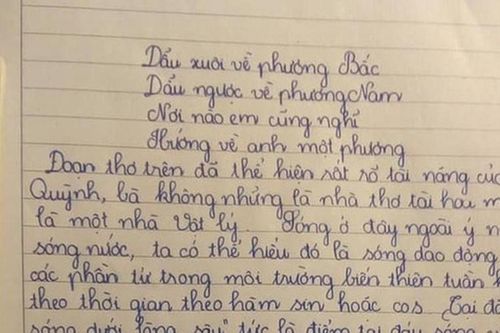 Dẩu xuôi về phương Bắc
Dẩu ngược về phương Nam
Nơi nào em cũng nghỉ
Hướng về anh một phương
Đoạn thơ trên đã thể hiện sất sổ tài năng củ
Quỳnh, bà không những là nhà thơ tài hoa m
là một nhà Vật lý. Sóng ở đây ngoài ý n
sóng nước, ta có thể hiểu đó là sóng dao động
các phần tử trong môi trường biến thiên tuần
theo thời gian theo hàm sin hoặc cos
sóng dưới lòng sâu" tức là điểm tại đáy sóng